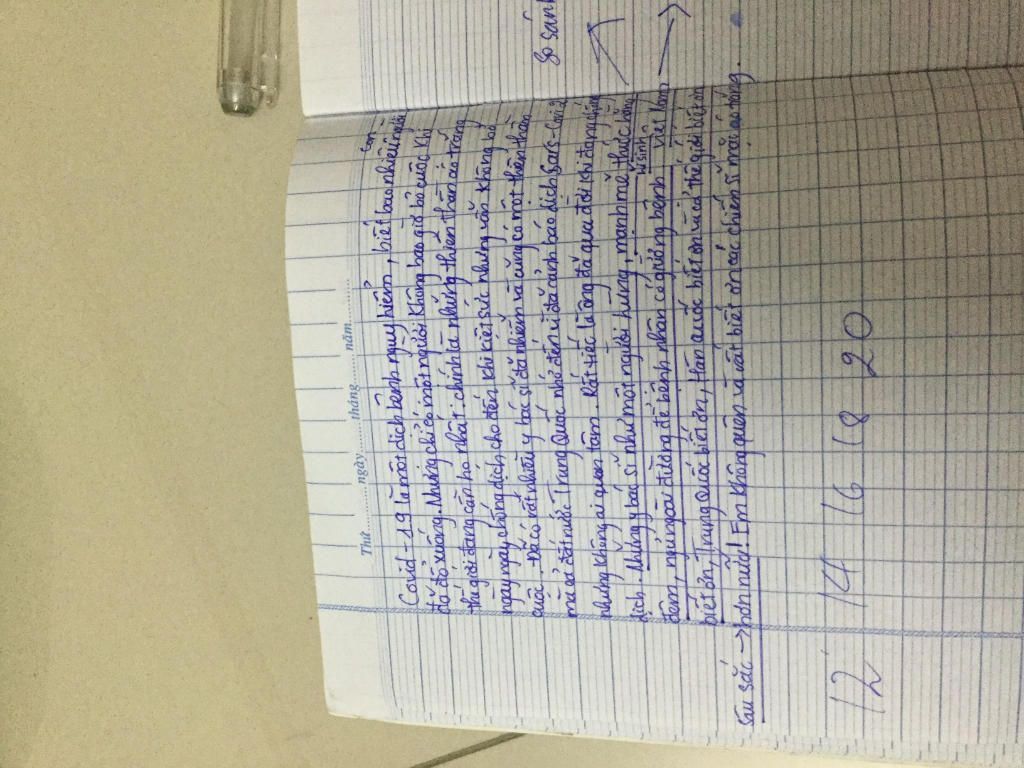 Thứ ........ ngày ........ tháng ........ năm ........
Covid-19 là một dịch bệnh nguy hiểm, biết bao nhiêu người con
đã đổ xuống. Nhưng chỉ có một người không bao giờ bỏ cuộc khi
thế giới đang cần họ nhất. chính là những thiên thần áo trắng
ngày ngày chống dịch cho đến khi kiệt sức nhưng vẫn không bỏ
cuộc. Đã có rất nhiều y bác sĩ đã nhiễm và cũng có một thiên thần
mà cả đất nước Trung Quốc nhớ đến vì đã cảnh báo dịch
nhưng không ai quan tâm. Rất tiếc là ông đã qua đời khi đang
dịch. Những y bác sĩ như một người hùng, mạnh mẽ thức hằng
hi sinh
đêm, ngủ ngoài đường để bệnh nhân có giường bệnh. Việt Nam
biết ơn, Trung Quốc biết ơn, Hàn Quốc biết ơn và cả thế giới biết ơn
sâu sắc → hơn nữa! Em không quên và rất biết ơn các chiến sĩ mặc áo trắng.
so sánh
12 14 16 18 20